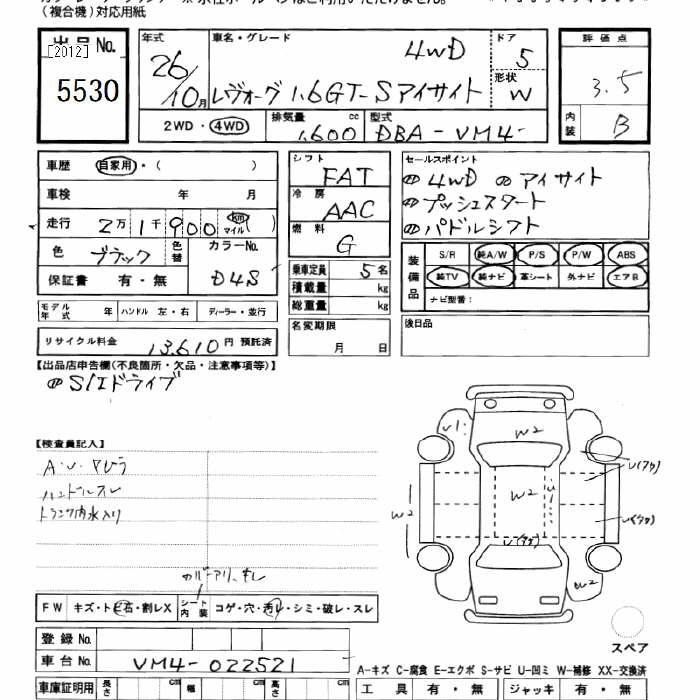 (複合機)対応用紙
出品No.
[2012]
5530
年式 車名・グレード ドア
26/10月 4WD 5
レヴォーグ 1.6GT-Sアイサイト 形状 W
2WD・4WD 排気量 1,600 cc 型式 DBA-VM4-
評価点
3.5
内装 B
車歴 自家用・( )
車検 年 月
走行 2万1千900 km マイル( )
色 ブラック 色替 カラーNo. D4S
保証書 有・無
モデル年式 年 ハンドル 左・右 ディーラー・並行
リサイクル料金 13,610円 預託済
シフト FAT
冷房 AAC
燃料 G
乗車定員 5名
積載量 kg
総重量 kg
名変期限
月 日
セールスポイント
4WD アイサイト
プッシュスタート
パドルシフト
装備品 S/R 純A/W P/S P/W ABS
純TV 純ナビ 革シート 外ナビ エアB
ナビ型番:
後日品
【出品店申告欄(不良箇所・欠品・注意事項等)】
S/Iドライブ
【検査員記入】
ハンドルスレ
トランク内水入り
FW キズ・トビ石・割レX シート内装 コゲ・穴・汚レ・シミ・破レ・スレ
登録No.
車台No. VM4-022521
車庫証明用 長さ cm 幅 cm 高さ cm
U1
W2
W2
W2
W2
スペア
A-キズ C-腐食 E-エクボ S-サビ U-凹ミ W-補修 XX-交換済
工具 有・無 ジャッキ 有・無